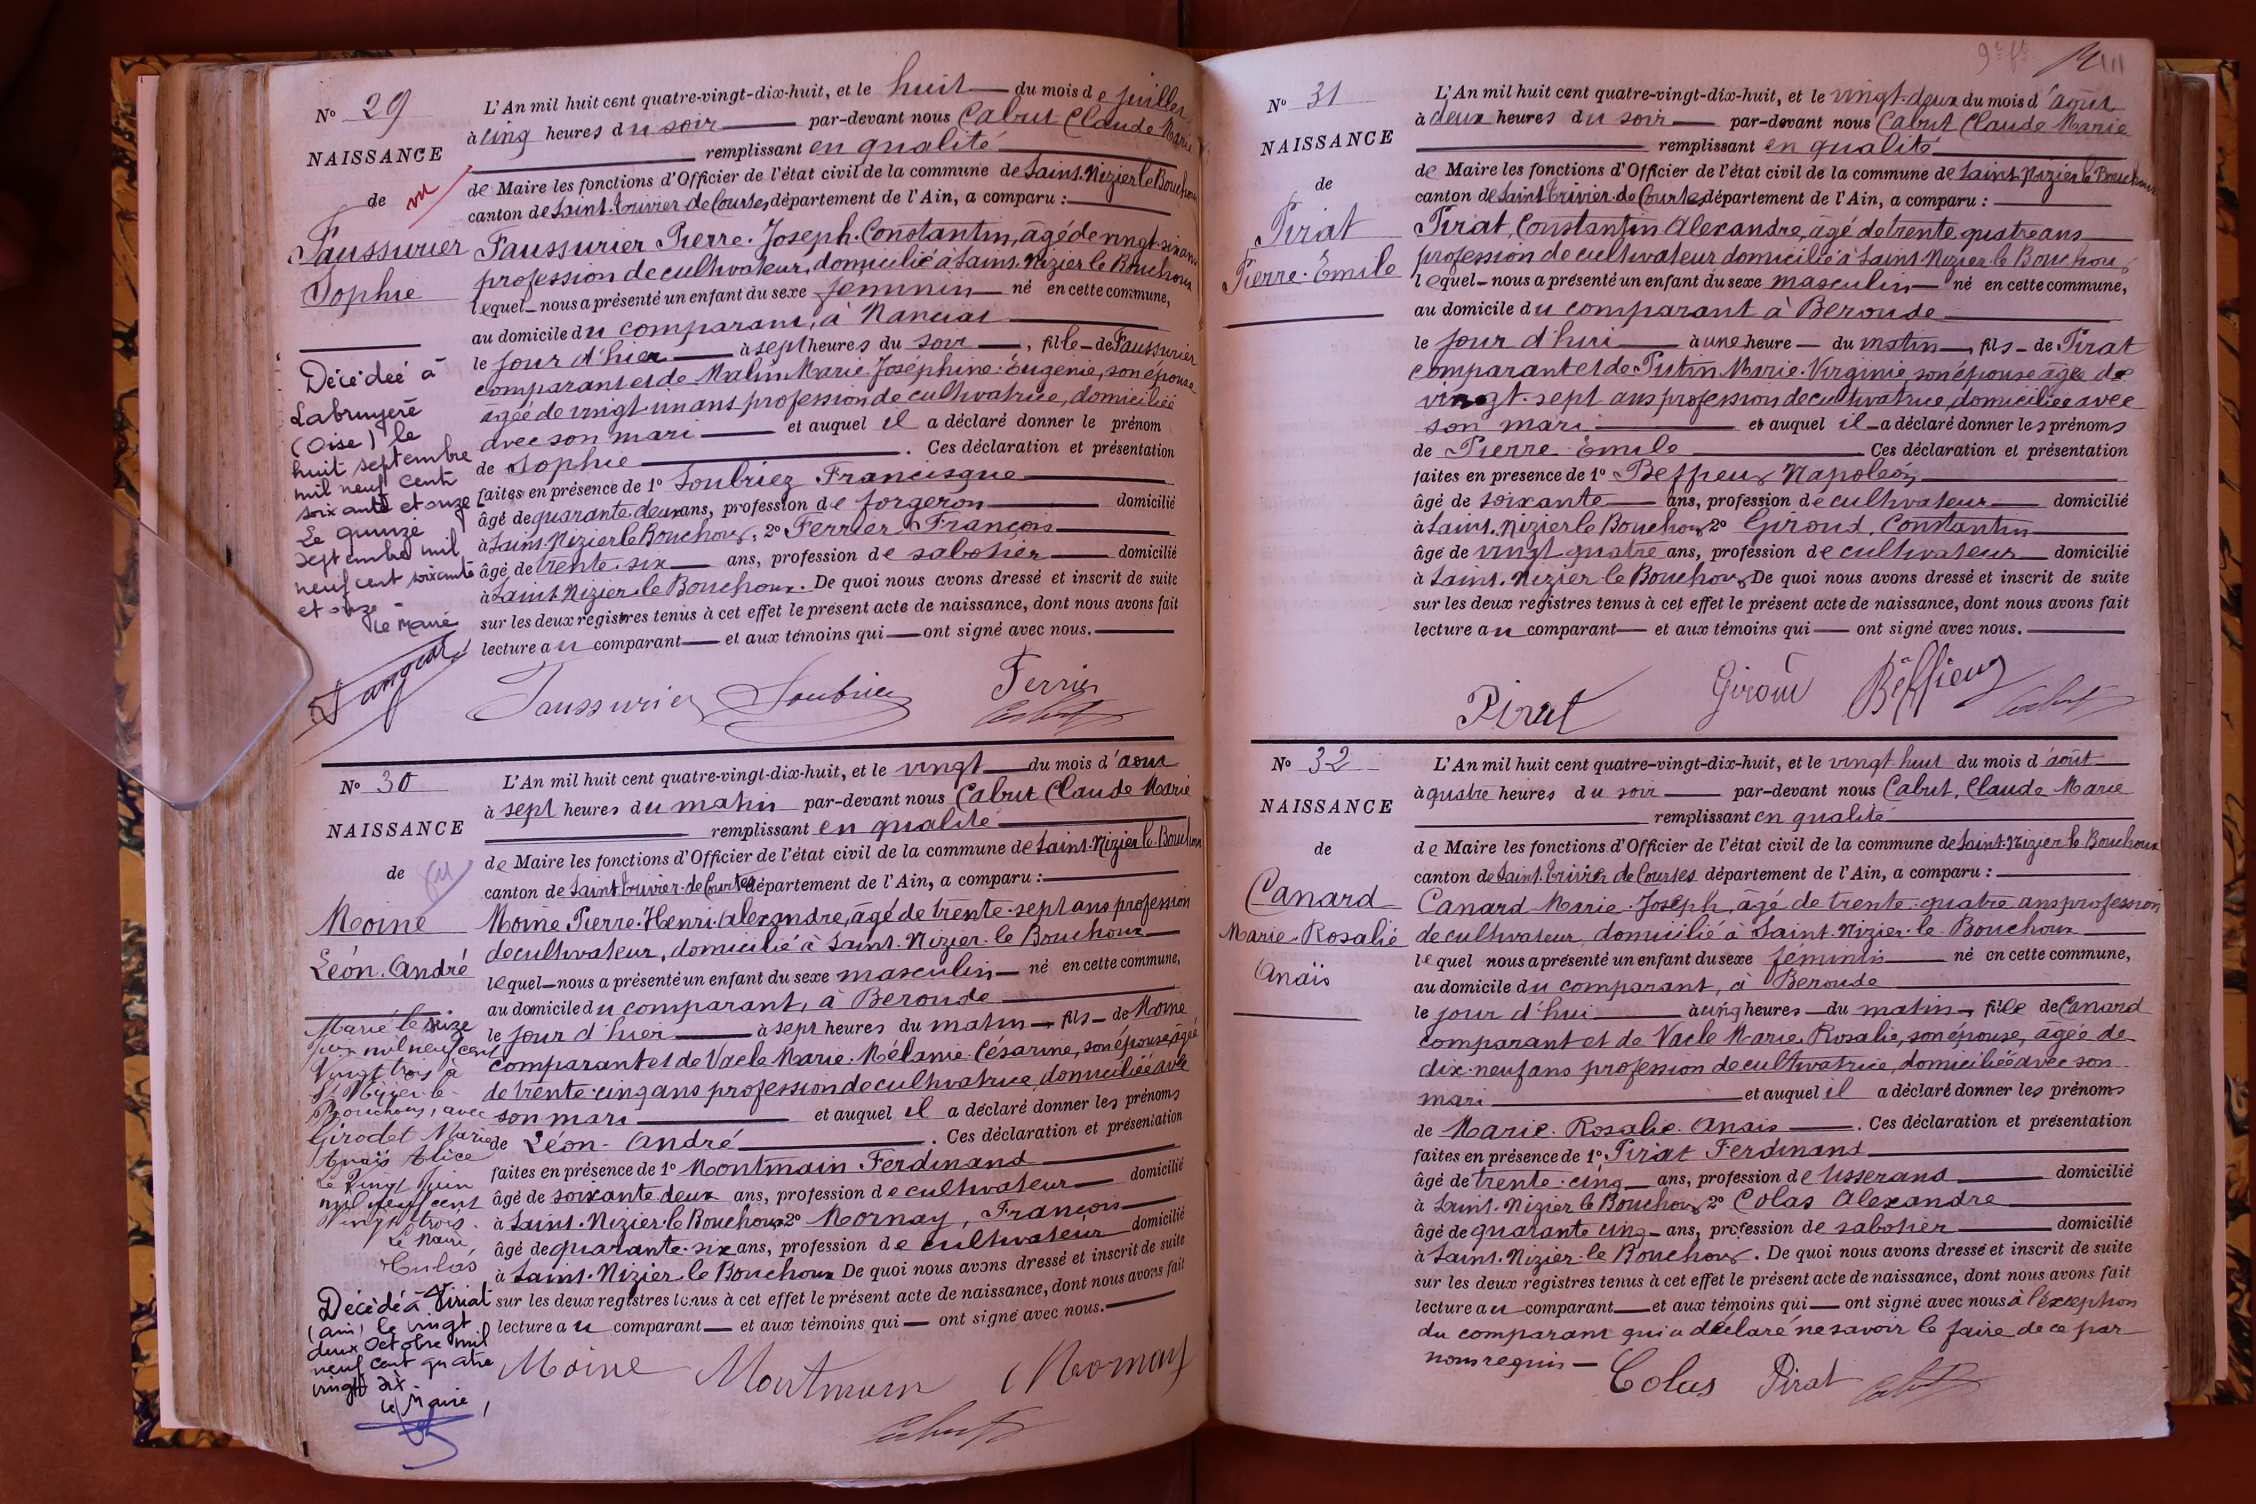 N° 29
NAISSANCE
de
vu
Faussurier
Sophie
Décédée à
Labruyère
(Oise) le
huit septembre
mil neuf cent
soixante et onze
Le quinze
septembre mil
neuf cent soixante
et onze
Le Maire
L'An mil huit cent quatre-vingt-dix-huit, et le huit du mois de juillet
à cinq heures du soir par-devant nous Cabut Claude Marie
remplissant en qualité
de Maire les fonctions d'Officier de l'état civil de la commune de Saint-Nizier le Bouchoux
canton de Saint-Trivier de Courtes, département de l'Ain, a comparu :
Faussurier Pierre-Joseph-Constantin, âgé de vingt-six ans
profession de cultivateur, domicilié à Saint-Nizier le Bouchoux
lequel nous a présenté un enfant du sexe féminin né en cette commune,
au domicile du comparant, à Nanciat
le jour d'hier à sept heures du soir, fille de Faussurier
comparant et de Malin Marie Joséphine Eugénie, son épouse
agée de vingt-un ans profession de cultivatrice, domiciliée
avec son mari et auquel il a déclaré donner le prénom
de Sophie. Ces déclaration et présentation
faites en présence de 1° Soubriez Francisque
âgé de quarante-deux ans, profession de forgeron domicilié
à Saint-Nizier le Bouchoux, 2° Ferrier François
âgé de trente-six ans, profession de sabotier domicilié
à Saint Nizier-le Bouchoux. De quoi nous avons dressé et inscrit de suite
sur les deux registres tenus à cet effet le présent acte de naissance, dont nous avons fait
lecture au comparant et aux témoins qui ont signé avec nous.
Faussurier Soubriez Ferrier
Cabut
N° 30
NAISSANCE
de
vu
Moine
Léon-André
Marié le seize
juin mil neuf cent
vingt trois à
St Nizier-le-
Bouchoux, avec
Girodet Marie
Anaïs Alice
Le vingt juin
mil neuf cent
vingt trois.
Le Maire,
Colas
Décédé à Viriat
(ain) le vingt
deux Octobre mil
neuf cent quatre
vingt dix
Le Maire,
L'An mil huit cent quatre-vingt-dix-huit, et le vingt du mois d'août
à sept heures du matin par-devant nous Cabut Claude Marie
remplissant en qualité
de Maire les fonctions d'Officier de l'état civil de la commune de Saint-Nizier-le-Bouchoux
canton de Saint Trivier-de Courtes département de l'Ain, a comparu :
Moine Pierre-Henri-Alexandre, âgé de trente-sept ans profession
de cultivateur, domicilié à Saint-Nizier-le Bouchoux
lequel nous a présenté un enfant du sexe masculin né en cette commune,
au domicile du comparant, à Beroude
le jour d'hier à sept heures du matin, fils de Moine
comparant et de Vacle Marie-Mélanie Césarine, son épouse, âgée
de trente-cinq ans profession de cultivatrice, domiciliée avec
son mari et auquel il a déclaré donner les prénoms
de Léon-André. Ces déclaration et présentation
faites en présence de 1° Montmain Ferdinand
âgé de soixante deux ans, profession de cultivateur domicilié
à Saint-Nizier-le Bouchoux 2° Mornay, François
âgé de quarante-six ans, profession de cultivateur domicilié
à Saint-Nizier-le Bouchoux De quoi nous avons dressé et inscrit de suite
sur les deux registres tenus à cet effet le présent acte de naissance, dont nous avons fait
lecture au comparant et aux témoins qui ont signé avec nous.
Moine Montmain Mornay
Cabut
N° 31
NAISSANCE
de
Pirat
Pierre-Emile
L'An mil huit cent quatre-vingt-dix-huit, et le vingt-deux du mois d'août
à deux heures du soir par-devant nous Cabut Claude Marie
remplissant en qualité
de Maire les fonctions d'Officier de l'état civil de la commune de Saint-Nizier le Bouchoux
canton de Saint Trivier-de Courtes département de l'Ain, a comparu :
Pirat, Constantin Alexandre, âgé de trente quatre ans
profession de cultivateur domicilié à Saint-Nizier-le Bouchoux
lequel nous a présenté un enfant du sexe masculin né en cette commune,
au domicile du comparant à Beroude
le jour d'hui à une heure du matin, fils de Pirat
comparant et de Putin Marie-Virginie, son épouse âgée de
vingt-sept ans profession de cultivatrice, domiciliée avec
son mari et auquel il a déclaré donner les prénoms
de Pierre-Emile Ces déclaration et présentation
faites en presence de 1° Beffieux Napoléon,
âgé de soixante ans, profession de cultivateur domicilié
à Saint-Nizier le Bouchoux, 2° Giroud, Constantin
âgé de vingt quatre ans, profession de cultivateur domicilié
à Saint-Nizier le Bouchoux De quoi nous avons dressé et inscrit de suite
sur les deux registres tenus à cet effet le présent acte de naissance, dont nous avons fait
lecture au comparant et aux témoins qui ont signé avec nous.
Pirat Giroud Béffieux Cabut
N° 32
NAISSANCE
de
Canard
Marie-Rosalie
Anaïs
L'An mil huit cent quatre-vingt-dix-huit, et le vingt huit du mois d'août
à quatre heures du soir par-devant nous Cabut, Claude Marie
remplissant en qualité
de Maire les fonctions d'Officier de l'état civil de la commune de Saint-Nizier le Bouchoux
canton de Saint-Trivier de Courtes département de l'Ain, a comparu :
Canard Marie-Joseph, âgé de trente-quatre ans profession
de cultivateur, domicilié à Saint-Nizier-le Bouchoux
lequel nous a présenté un enfant du sexe féminin né en cette commune,
au domicile du comparant, à Beroude
le jour d'hui à cinq heures du matin, fille de Canard
comparant et de Vacle Marie Rosalie, son épouse, âgée de
dix-neuf ans profession de cultivatrice, domiciliée avec son
mari et auquel il a déclaré donner les prénoms
de Marie-Rosalie-Anaïs. Ces déclaration et présentation
faites en présence de 1° Pirat Ferdinand
âgé de trente-cinq ans, profession de tisserand domicilié
à Saint-Nizier le Bouchoux 2° Colas Alexandre
âgé de quarante cinq ans, profession de sabotier domicilié
à Saint-Nizier-le Bouchoux. De quoi nous avons dressé et inscrit de suite
sur les deux registres tenus à cet effet le présent acte de naissance, dont nous avons fait
lecture au comparant et aux témoins qui ont signé avec nous à l'exception
du comparant qui a déclaré ne savoir le faire de ce par
nous requis
Colas Pirat Cabut